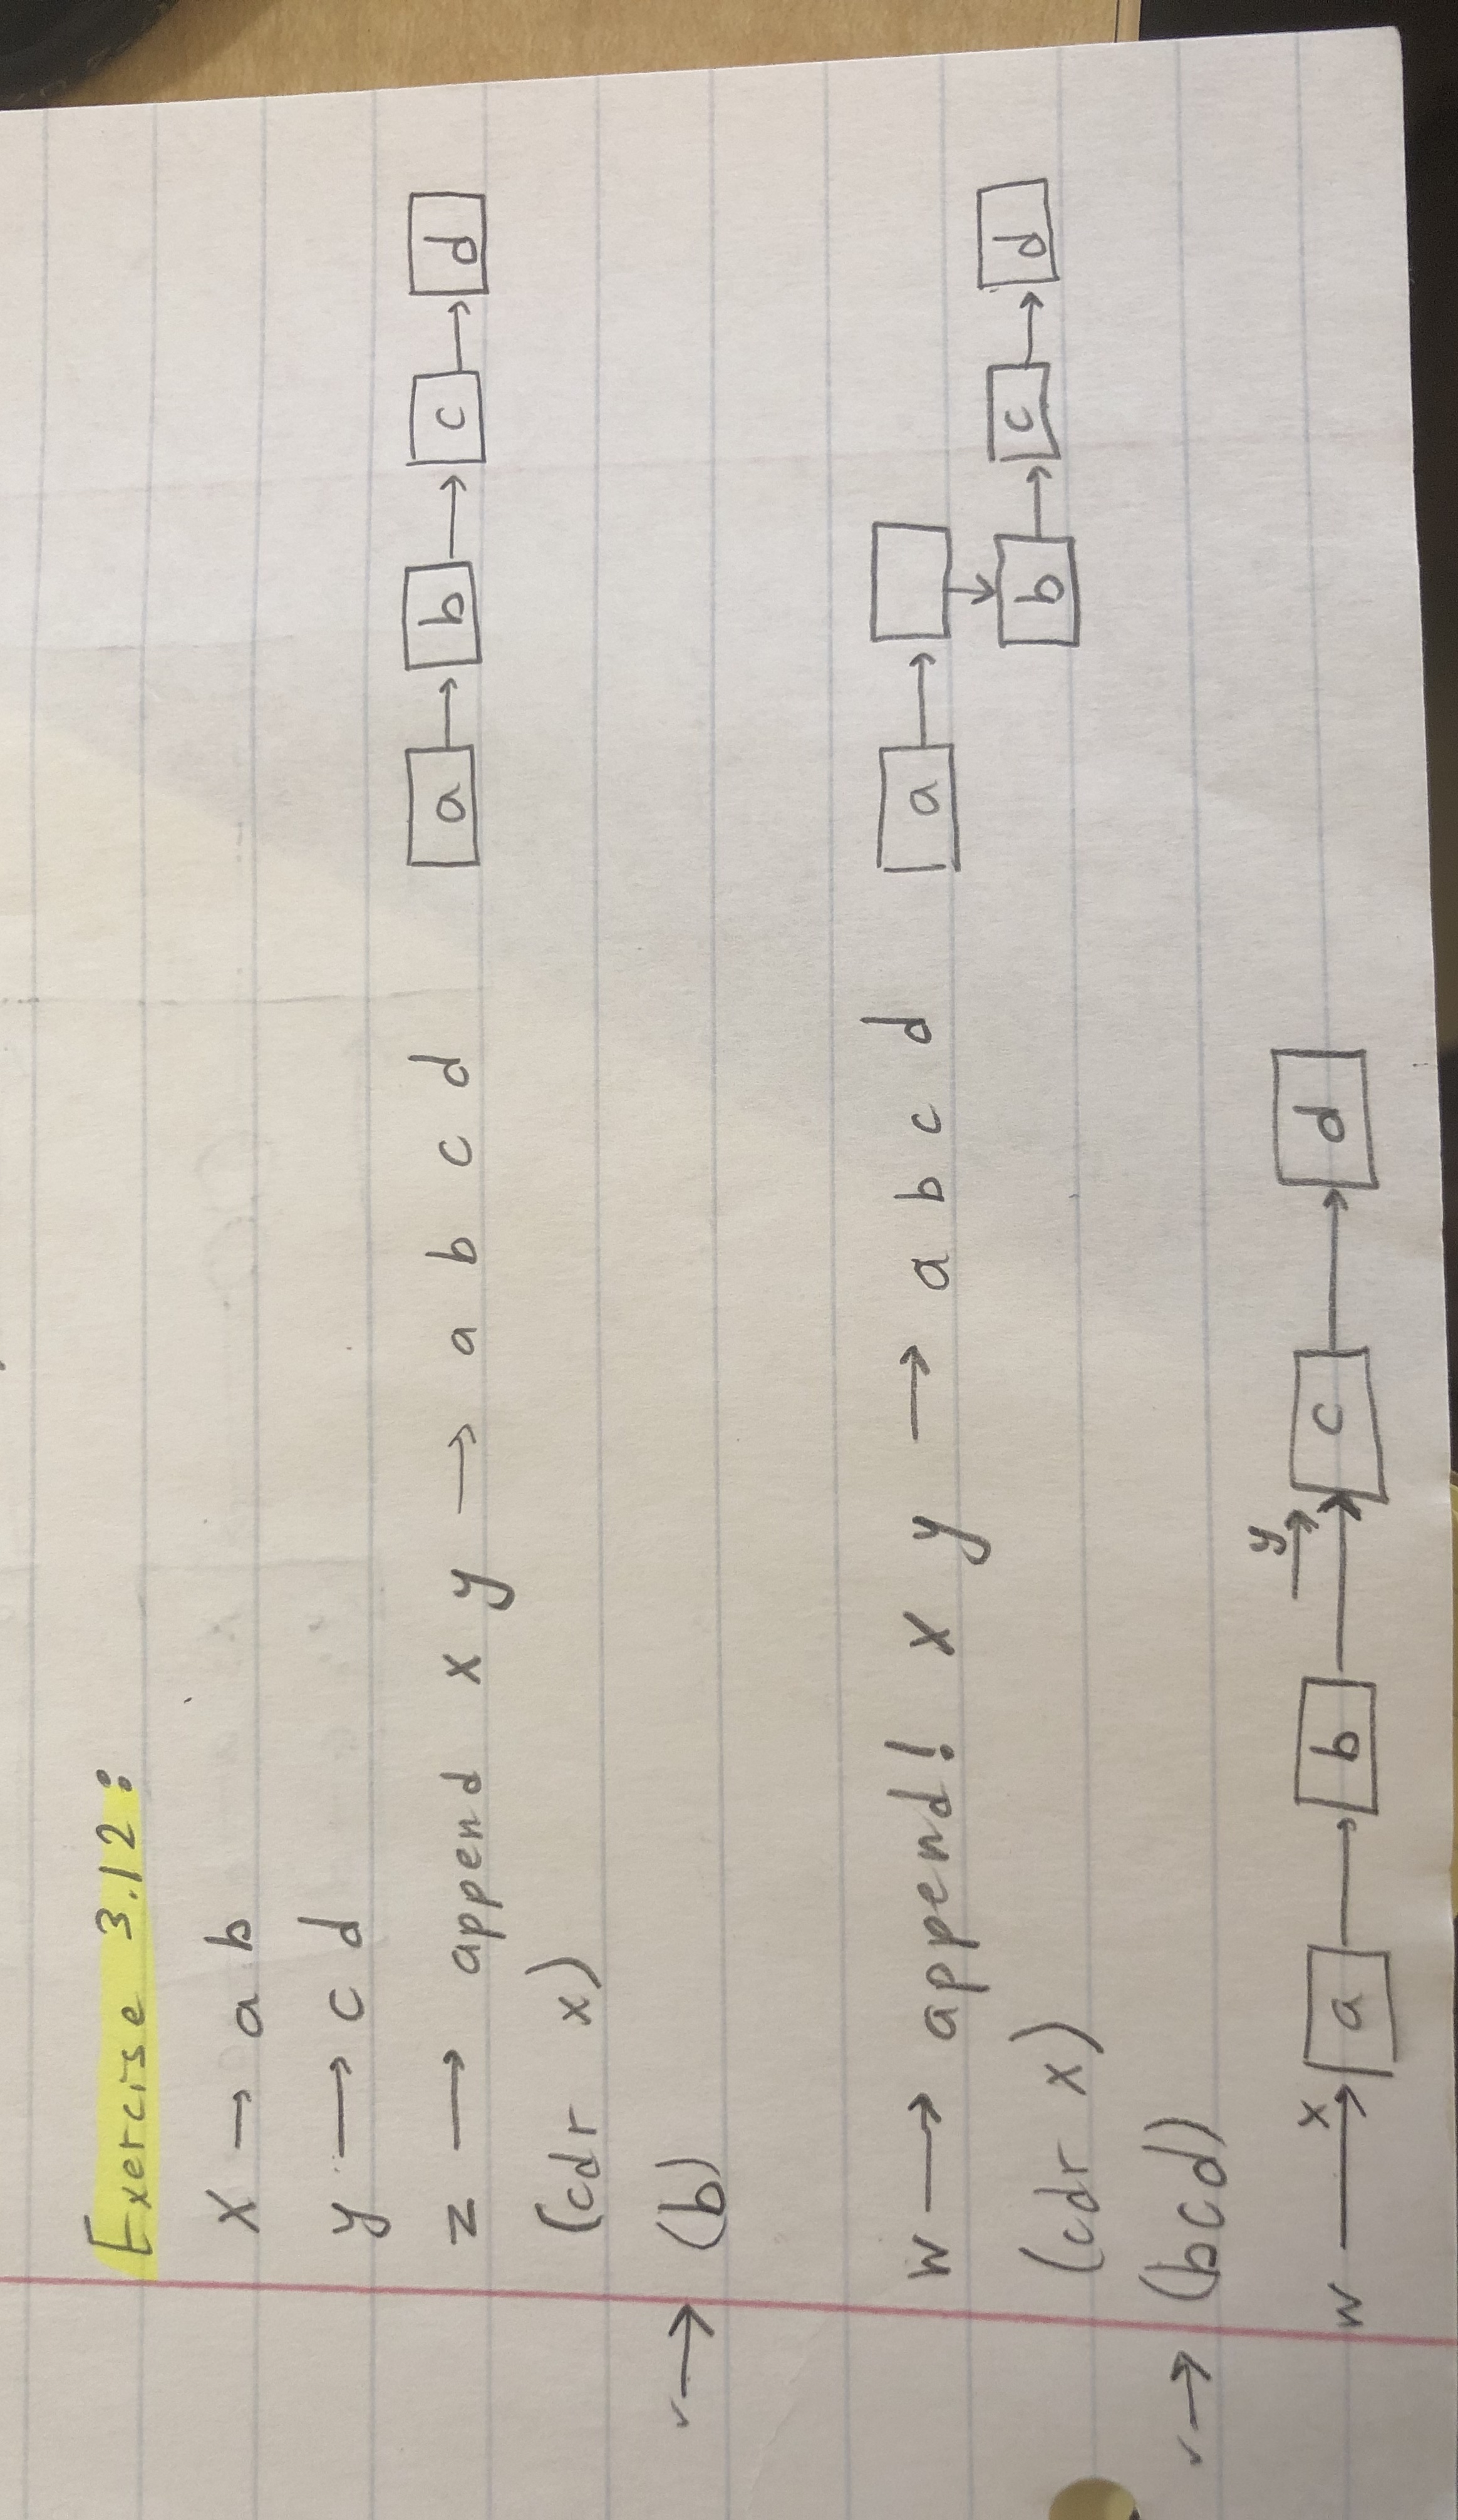 Exercise 3.12:
x → a b
y → c d
z → append x y → a b c d a → b → c → d
(cdr x)
→ (b)
w → append! x y → a b c d a →
b → c → d
(cdr x)
→ (bcd)
w → x a → b → y c → d